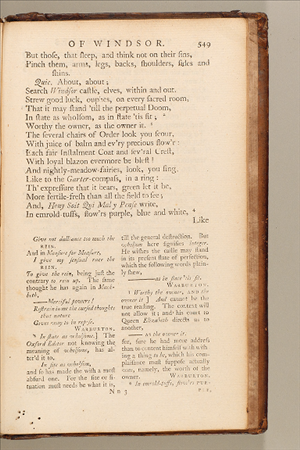 OF WINDSOR. 549
But those, that sleep, and think not on their sins,
Pinch them, arms, legs, backs, shoulders, sides and
shins.
Quic. About, about;
Search Windsor castle, elves, within and out.
Strew good luck, ouphes, on every sacred room,
That it may stand 'till the perpetual Doom,
In state as wholsom, as in state 'tis fit;
Worthy the owner, as the owner it.
The several chairs of Order look you scour,
With juice of balm and ev'ry precious flow'r:
Each fair Instalment Coat and sev'ral Crest,
With loyal blazon evermore be blest!
And nightly-meadow-fairies, look, you sing,
Like to the Garter-compass, in a ring:
Th' expressure that it bears, green let it be,
More fertile-fresh than all the field to see;
And, Hony Soit Qui Mal y Pense write,
In emrold-tuffs, flow'rs purple, blue and white,
Like
Give not dalliance too much the
rein.
And in Measure for Measure,
I give my sensual race the
rein.
To give the rein, being just the
contrary to rein up. The same
thought he has again in Mac-
beth,
—Merciful powers!
Restrain in me the cursed thoughts
that nature
Gives way to in repose.
WARBURTON.
In state as wholsome.] The
Oxford Editor not knowing the
meaning of wholsome, has al-
ter'd it to,
In site as wholsom,
and so has made the wish a most
absurd one. For the site or si-
tuation must needs be what it is,
till the general destruction. But
wholsom here signifies integer.
He wishes the castle may stand
in its present state of perfection,
which the following words plain-
ly shew,
—as in state 'tis fit.
WARBURTON.
Worthy the owner, AND the
owner it.] And cannot be the
true reading. The context will
not allow it; and his court to
Queen Elizabeth directs us to
another,
—as the owner it.
for, sure he had more address
than to content himself with wish-
ing a thing to be, which his com-
plaisance must suppose actually
was, namely, the worth of the
owner. WARBURTON.
In emrold-tuffs, flow'rs PUR-
N n 3
PLE,